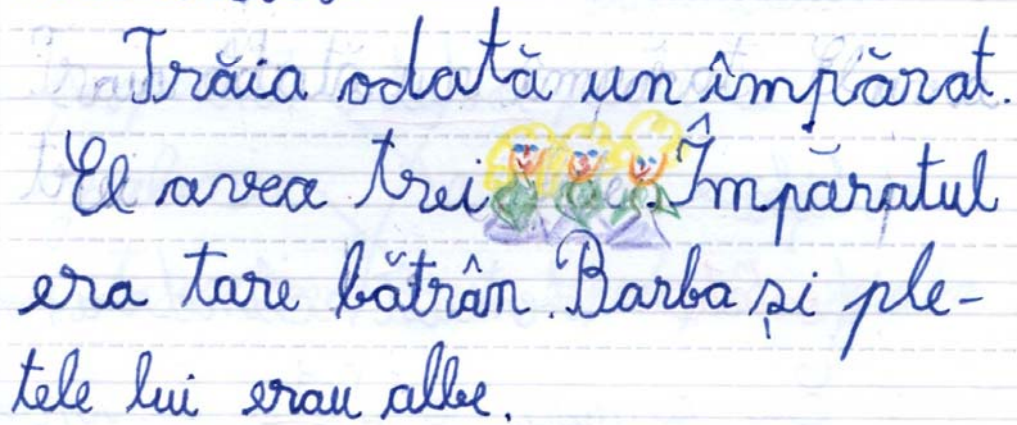 Trăia odată un împărat.
El avea trei . Împăratul
era tare bătrân. Barba și ple-
tele lui erau albe.